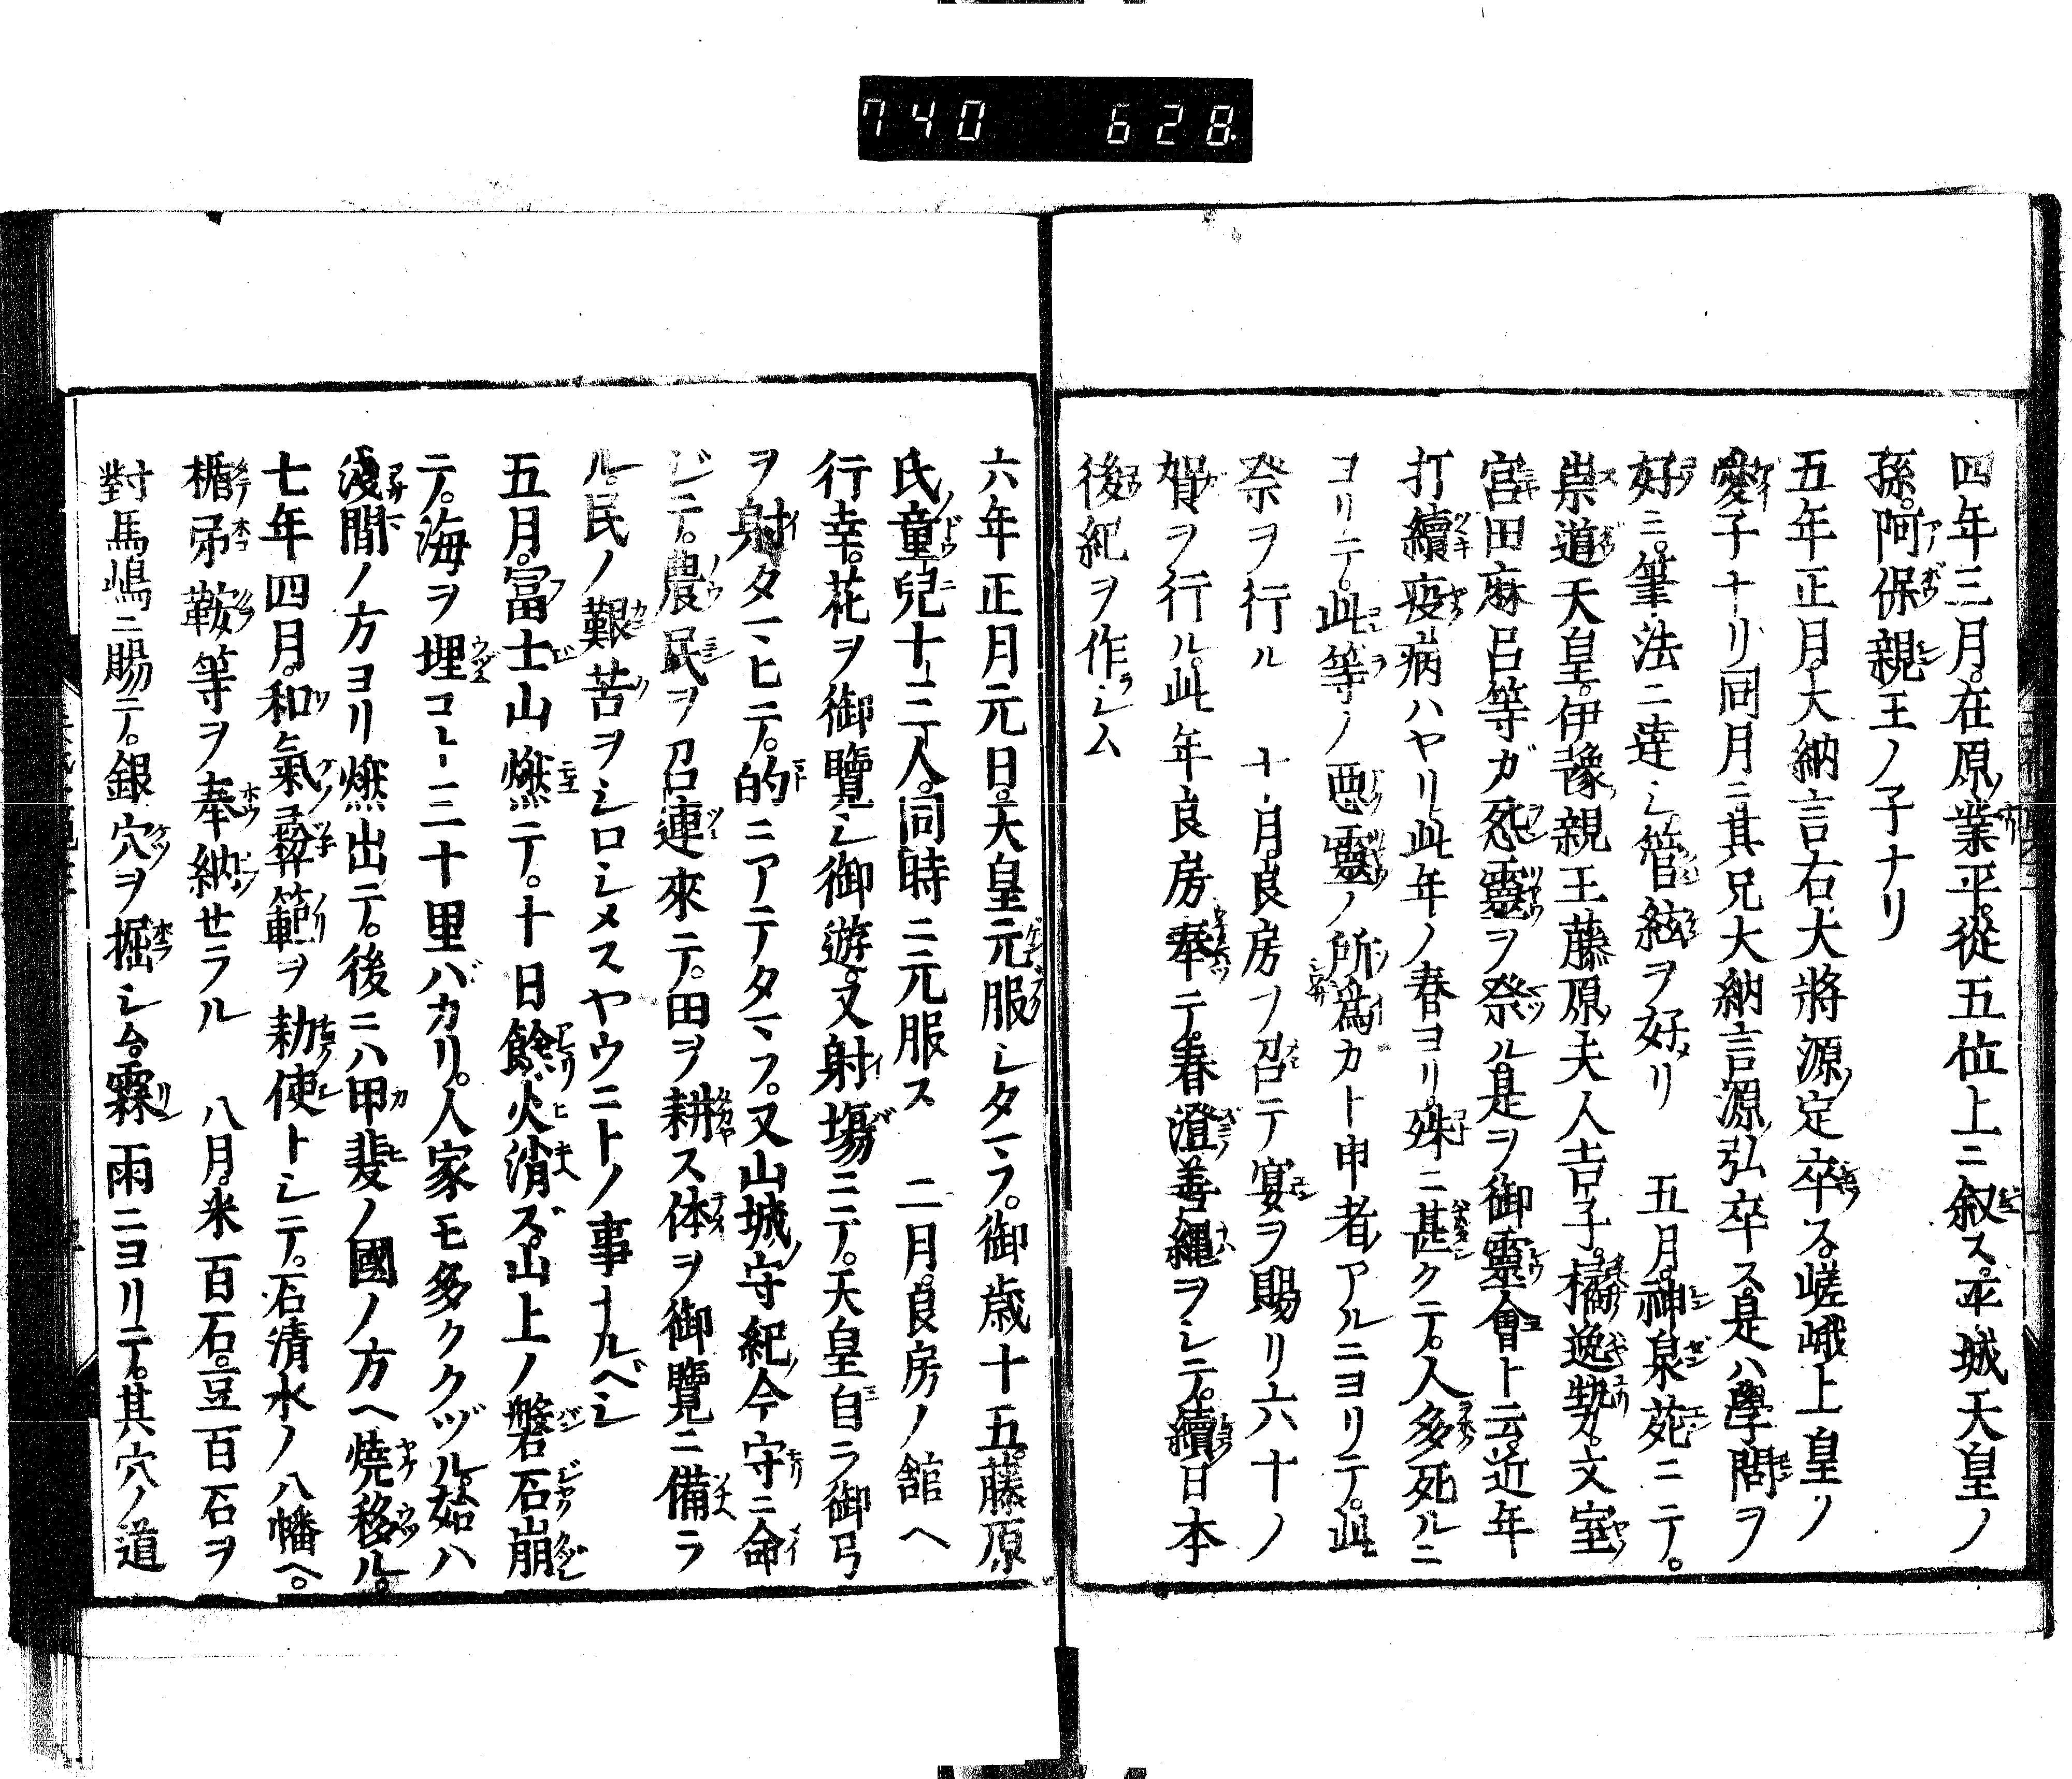 740 628
四年三月。在原業平。從五位上ニ叙ス。平城天皇ノ
孫。阿保親王ノ子ナリ
五年正月。大納言右大將源定卒ス。嵯峨上皇ノ
愛子ナリ同月ニ其兄大納言源弘卒ス。是ハ學問ヲ
好ミ。筆法ニ達シ管絃ヲ好メリ　五月。神泉苑ニテ。
崇道天皇。伊豫親王藤原夫人吉子。橘逸勢。文室
宮田麻呂等ガ死靈ヲ祭ル是ヲ御靈會ト云。近年
打續疫病ハヤリ。此年ノ春ヨリ。殊ニ甚クテ。人多死ルニ
ヨリテ。此等ノ惡靈ノ所爲カト申者アルニヨリテ。此
祭ヲ行ル　十月。良房ヲ召テ宴ヲ賜リ六十ノ
賀ヲ行ル。此年良房奉テ。春澄善繩ヲシテ。續日本
後紀ヲ作ラシム
六年正月元日。天皇元服シタマフ。御歳十五。藤原
氏童兒十三人。同時ニ元服ス　二月。良房ノ舘ヘ
行幸。花ヲ御覽シ御遊。又射塲ニテ。天皇自ラ御弓
ヲ射タマヒテ。的ニアテタマフ。又山城守紀今守ニ命
ジテ。農民ヲ召連來テ。田ヲ耕ス体ヲ御覽ニ備ラ
ル。民ノ艱苦ヲシロシメスヤウニトノ事ナルベシ
五月。富士山燃テ。十日餘火消ズ。山上ノ磐石崩
テ。海ヲ埋コト三十里バカリ。人家モ多ククヅル。始ハ
淺間ノ方ヨリ燃出テ。後ニハ甲斐ノ國ノ方ヘ燒移ル。
七年四月。和氣彛範ヲ勅使トシテ。石清水ノ八幡ヘ。
楯鉾鞍等ヲ奉納セラル　八月。米百石。豆百石ヲ
對馬嶋ニ賜テ。銀穴ヲ掘シム。霖雨ニヨリテ。其穴ノ道